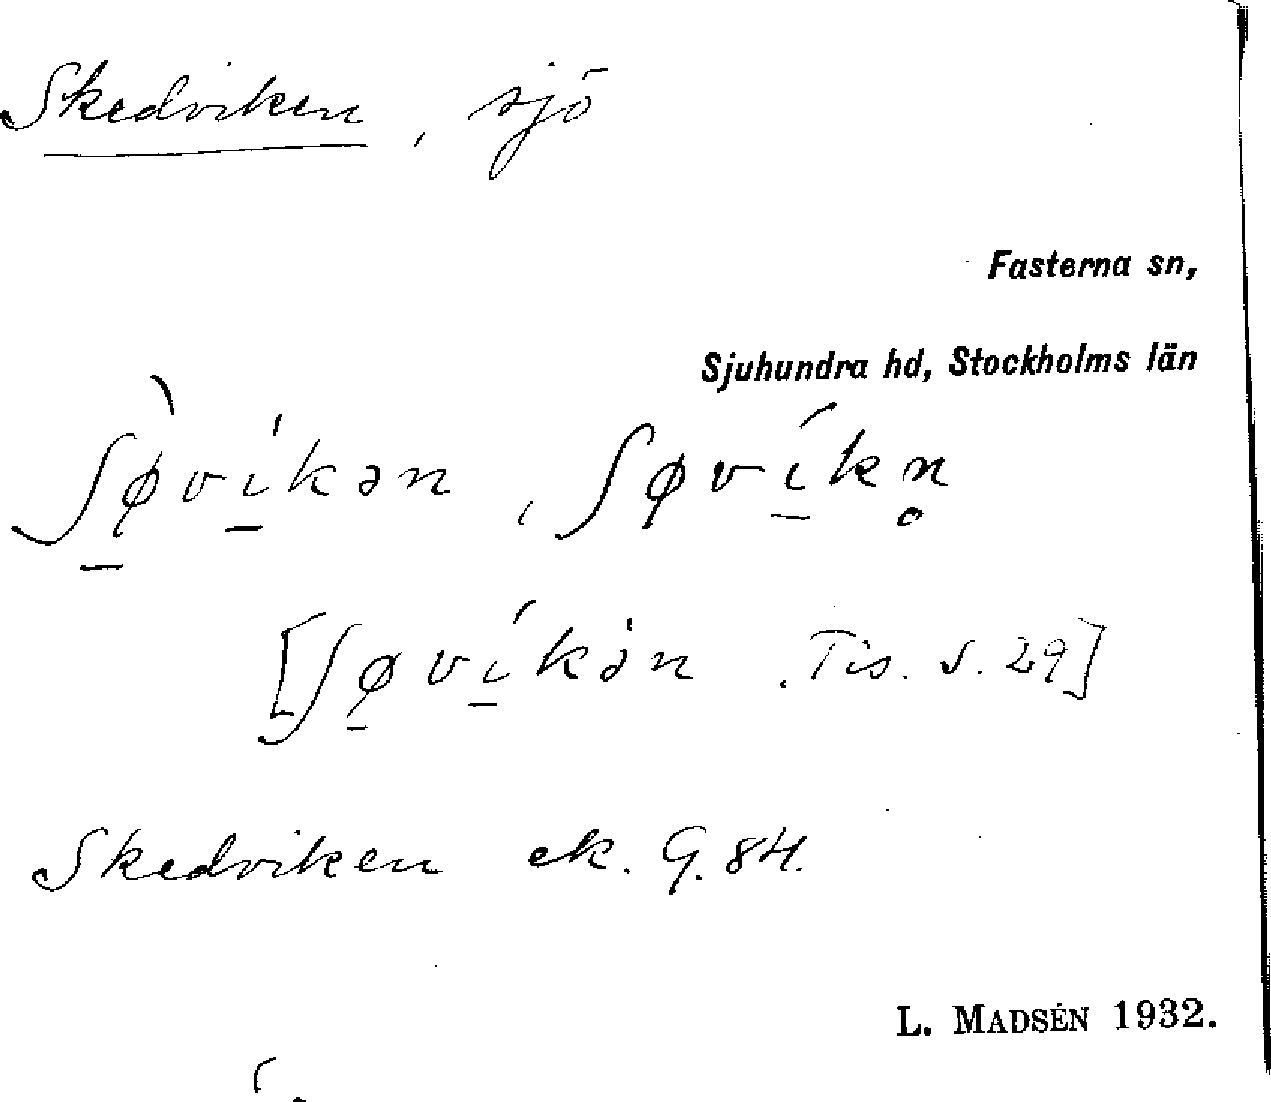 Skedviken, sjö
Fasterna sn,
Sjuhundra hd, Stockholms län
ʃø̠̀vi̠̍kən, ʃøví̠kn̥
[ʃø̠ví̠kə̍n. Tis. s. 29]
Skedviken ek. G. 84.
L. MADSÉN 1932.